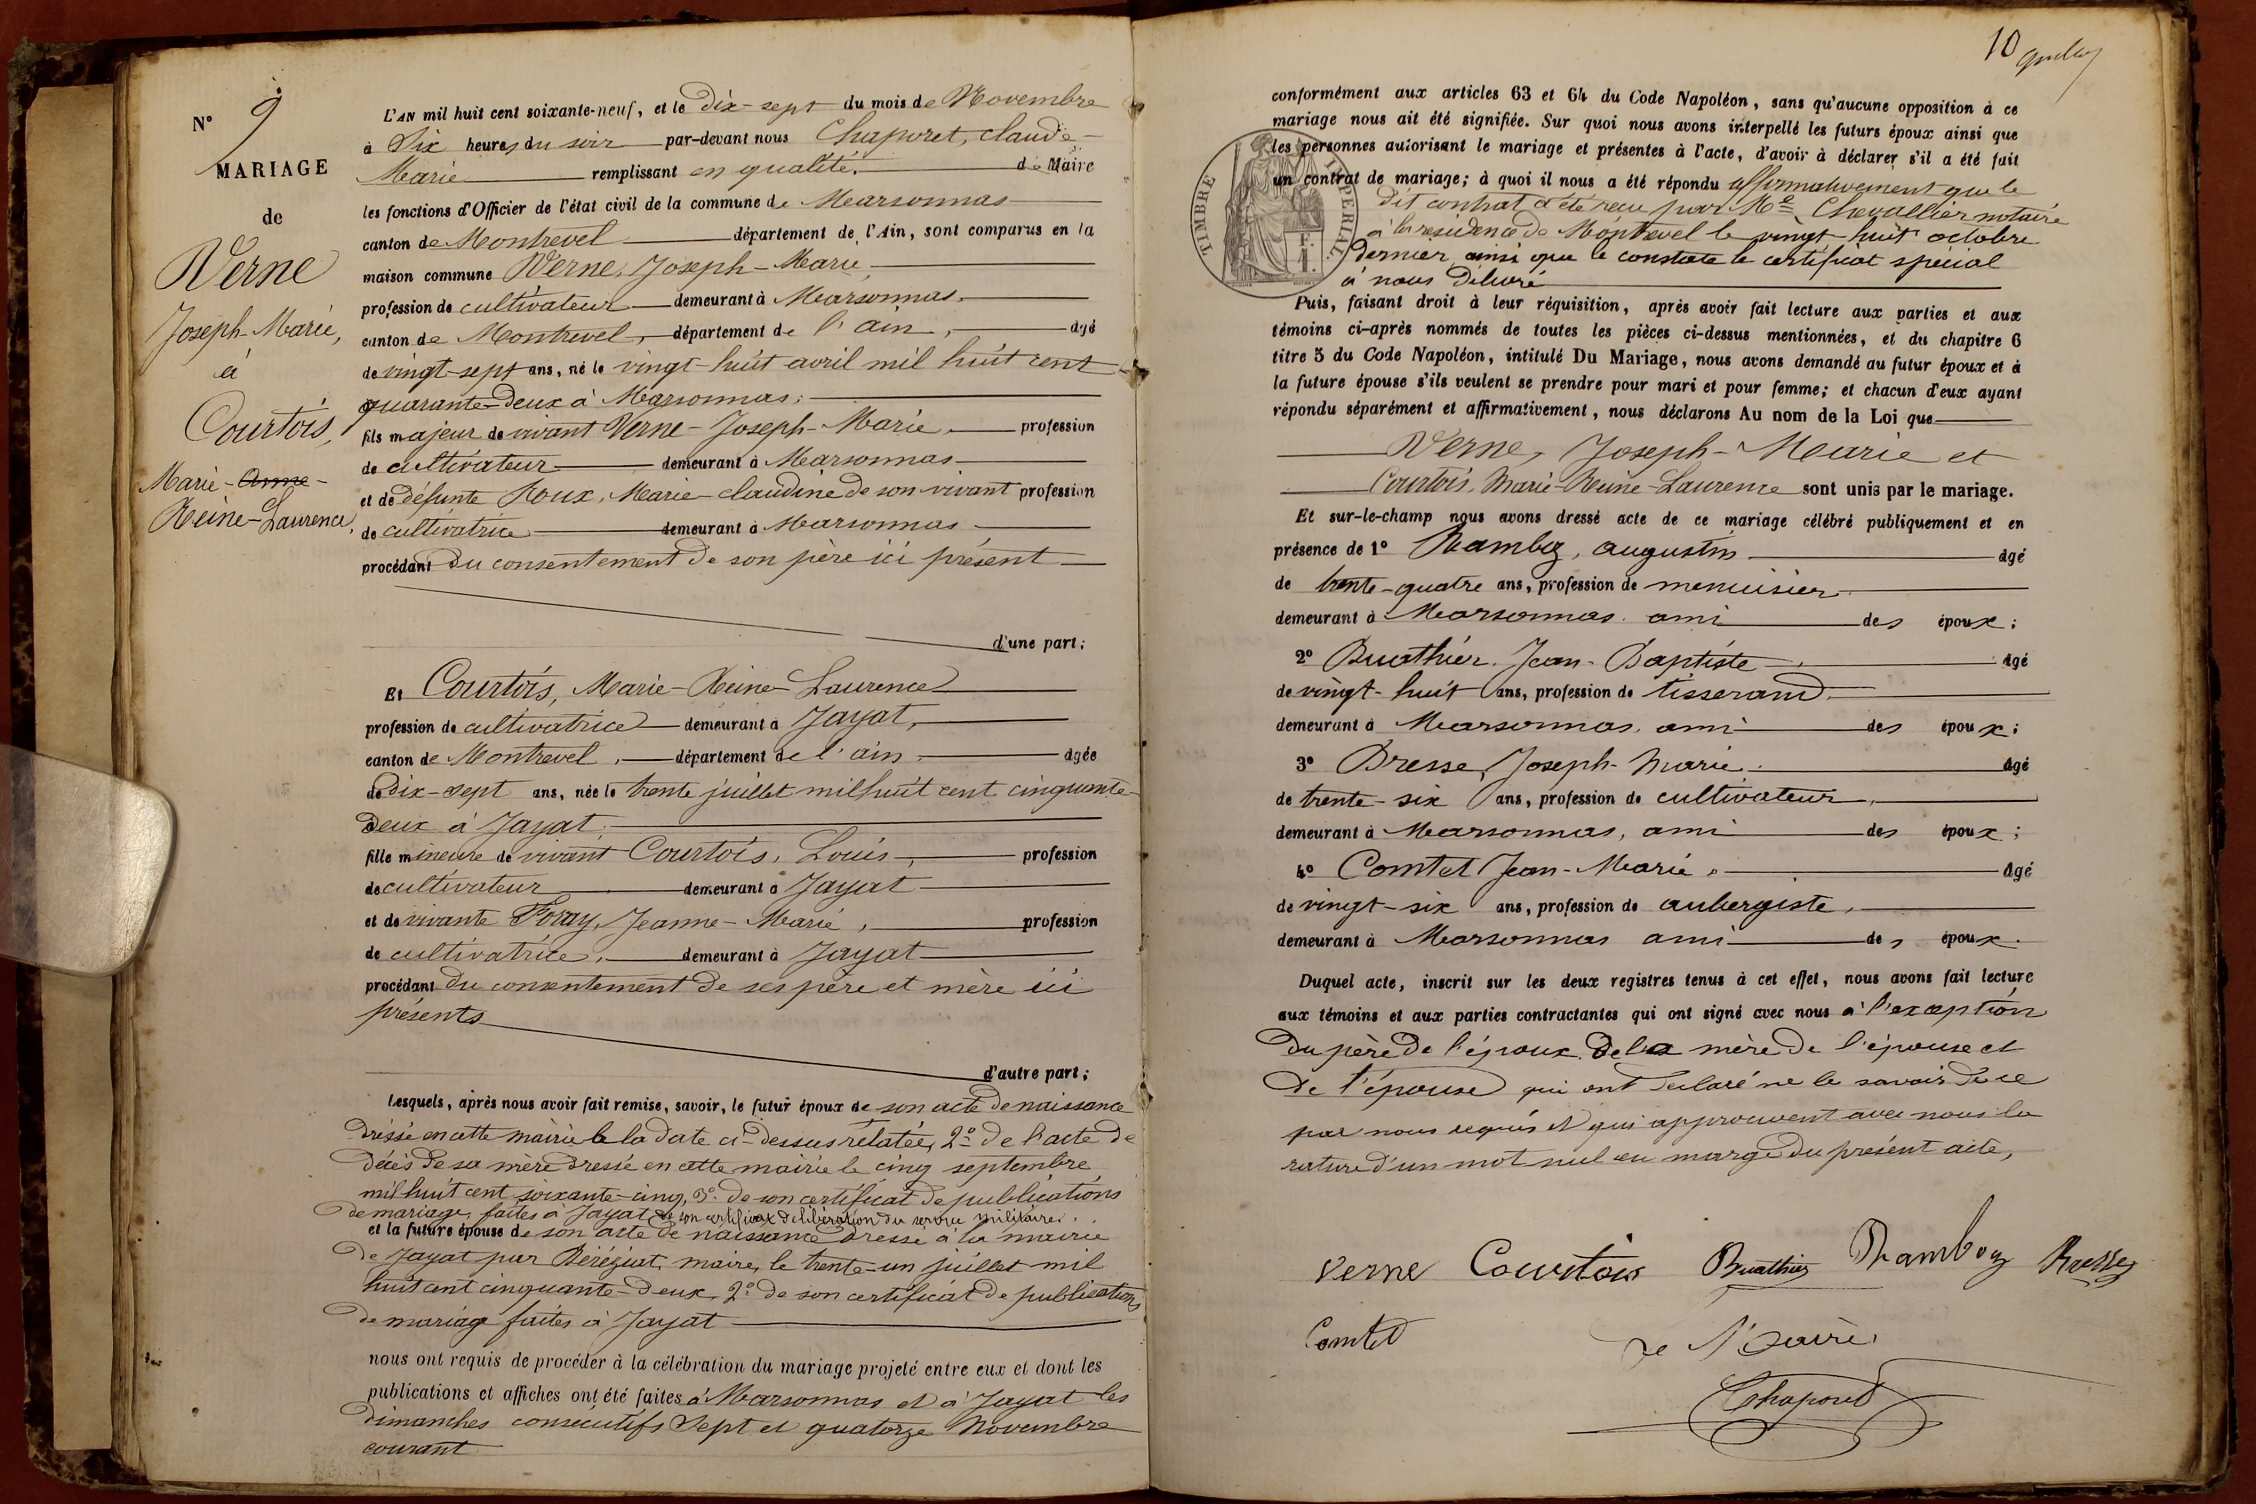 N° 9
MARIAGE
de
Verne
Joseph-Marie,
à
Courtois,
Marie-Anne-
Reine-Laurence,
L'AN mil huit cent soixante-neuf, et le dix-sept du mois de Novembre
à Six heures du soir par-devant nous Chaporet, claude-
Marie remplissant en qualité de Maire
les fonctions d'Officier de l'état civil de la commune de Marsonnas
canton de Montrevel département de l'Ain, sont comparus en la
maison commune Verne, Joseph-Marie,
profession de cultivateur demeurant à Marsonnas,
canton de Montrevel, département de l'ain, âgé
de vingt-sept ans, né le vingt-huit avril mil huit cent
quarante-deux à Marsonnas;
fils majeur de vivant Verne-Joseph-Marie, profession
de cultivateur demeurant à Marsonnas
et de défunte Roux, Marie-claudine de son vivant profession
de cultivatrice demeurant à Marsonnas
procédant du consentement de son père ici présent
d'une part;
Et Courtois, Marie-Reine-Laurence
profession de cultivatrice demeurant à Jayat,
canton de Montrevel, département de l'ain, âgée
de dix-sept ans, née le trente juillet mil huit cent cinquante-
deux à Jayat;
fille mineure de vivant Courtois, Louis, profession
de cultivateur demeurant à Jayat
et de vivante Foray, Jeanne-Marie, profession
de cultivatrice, demeurant à Jayat
procédant du consentement de ses père et mère ici
présents
d'autre part;
Lesquels, après nous avoir fait remise, savoir, le futur époux de son acte de naissance
dressé en cette mairie à la date ci-dessus relatée, 2° de l'acte de
décès de sa mère dressé en cette mairie le cinq septembre
mil huit cent soixante-cinq, 3° de son certificat de publications
de mariage faites à Jayat de son certificat de libération du service militaire.
et la future épouse de son acte de naissance dressé à la mairie
de Jayat par Béréziat, maire, le trente-un juillet mil
huit cent cinquante-deux, 2° de son certificat de publications
de mariage faites à Jayat
nous ont requis de procéder à la célébration du mariage projeté entre eux et dont les
publications et affiches ont été faites à Marsonnas et à Jayat les
dimanches consécutifs Sept et quatorze Novembre
courant
10
TIMBRE IMPERIAL
conformément aux articles 63 et 64 du Code Napoléon, sans qu'aucune opposition à ce
mariage nous ait été signifiée. Sur quoi nous avons interpellé les futurs époux ainsi que
les personnes autorisant le mariage et présentes à l'acte, d'avoir à déclarer s'il a été fait
un contrat de mariage; à quoi il nous a été répondu affirmativement que le
dit contrat a été reçu par Me Chevallier notaire
à la résidence de Montrevel le vingt huit octobre
dernier, ainsi que le constate le certificat spécial
à nous délivré
Puis, faisant droit à leur réquisition, après avoir fait lecture aux parties et aux
témoins ci-après nommés de toutes les pièces ci-dessus mentionnées, et du chapitre 6
titre 5 du Code Napoléon, intitulé Du Mariage, nous avons demandé au futur époux et à
la future épouse s'ils veulent se prendre pour mari et pour femme; et chacun d'eux ayant
répondu séparément et affirmativement, nous déclarons Au nom de la Loi que
Verne, Joseph-Marie et
Courtois, Marie-Reine-Laurence sont unis par le mariage.
Et sur-le-champ nous avons dressé acte de ce mariage célébré publiquement et en
présence de 1° Ramboz, augustin âgé
de trente-quatre ans, profession de menuisier
demeurant à Marsonnas, ami des époux;
2° Buathier, Jean-Baptiste, âgé
de vingt-huit ans, profession de tisserand,
demeurant à Marsonnas, ami des époux;
3° Bresse, Joseph-Marie, âgé
de trente-six ans, profession de cultivateur,
demeurant à Marsonnas, ami des époux;
4° Comtet Jean-Marie, âgé
de vingt-six ans, profession de aubergiste,
demeurant à Marsonnas ami des époux.
Duquel acte, inscrit sur les deux registres tenus à cet effet, nous avons fait lecture
aux témoins et aux parties contractantes qui ont signé avec nous à l'exception
du père de l'époux, de la mère de l'épouse et
de l'épouse qui ont déclaré ne le savoir de ce
par nous requis et qui approuvent avec nous la
rature d'un mot nul en marge du présent acte,
Verne Courtois Buathier Ramboz Bresse
Comtet Le Maire,
Chaporet